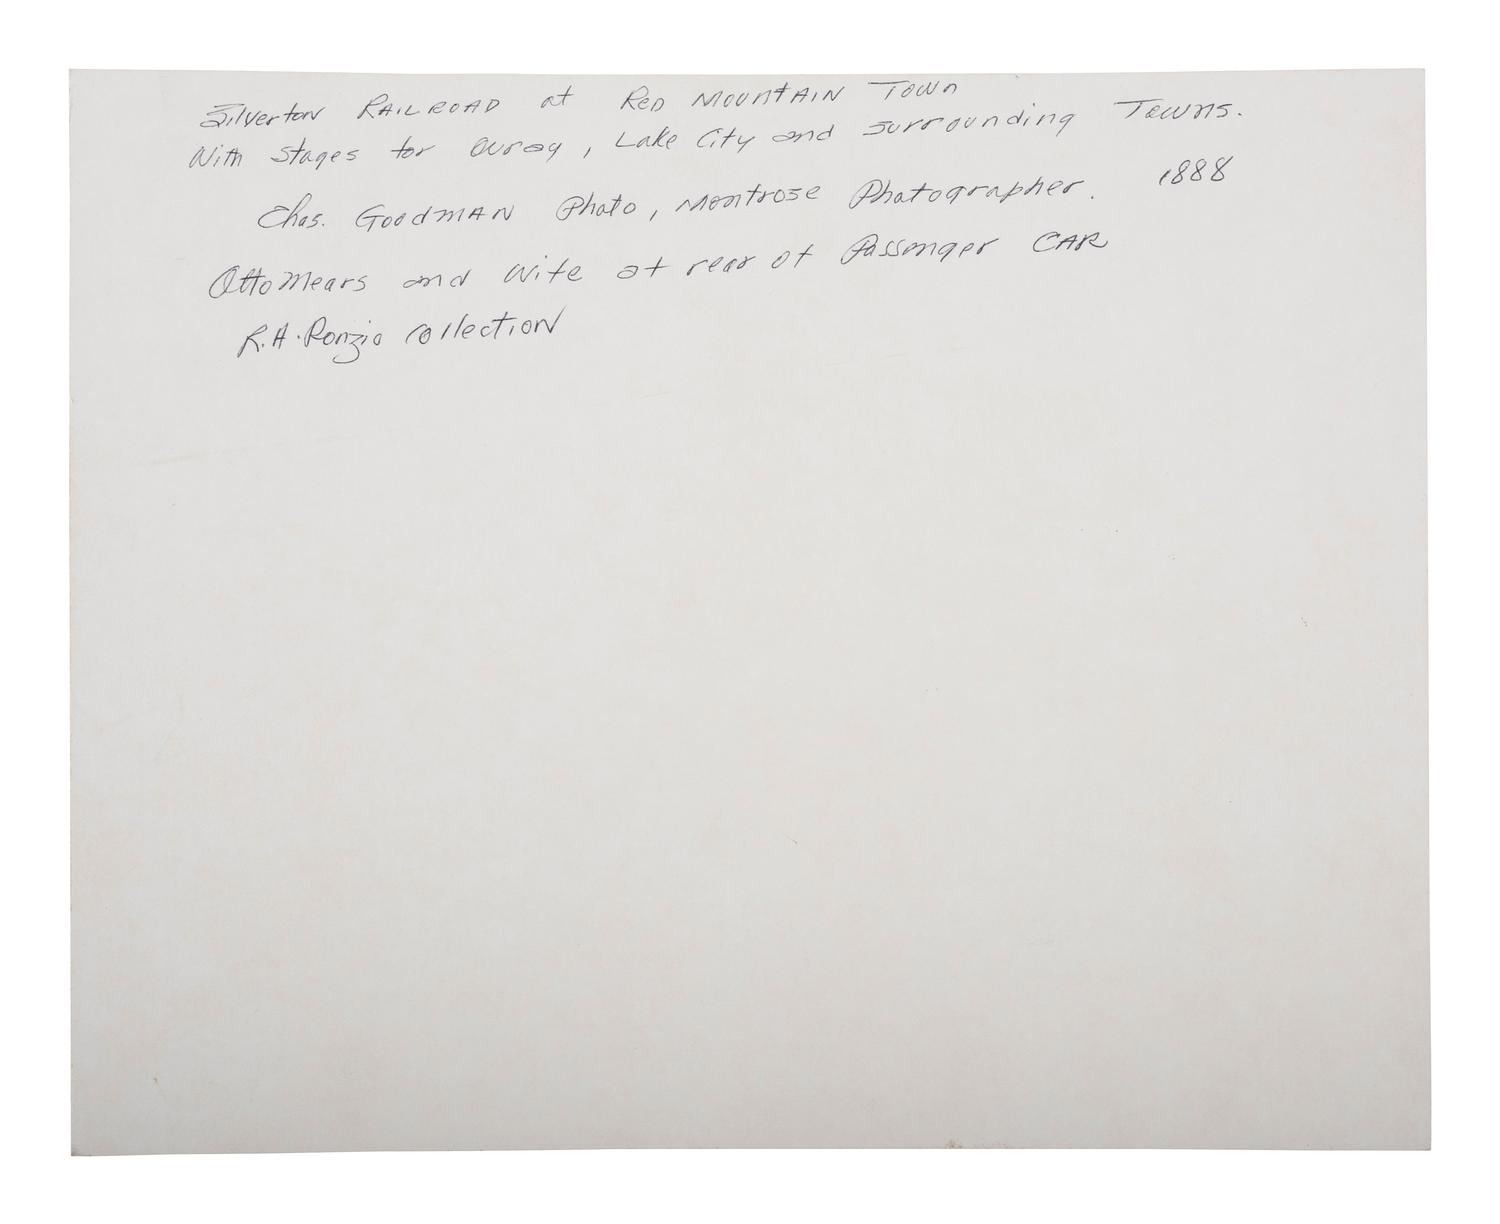 Silverton RAILROAD at RED MOUNTAIN TOWN
With stages for Ouray, Lake City and surrounding Towns.
Chas. GOODMAN Photo, Montrose Photographer. 1888
Otto Mears and Wife at rear of Passenger CAR
R.A. Ronzio collection